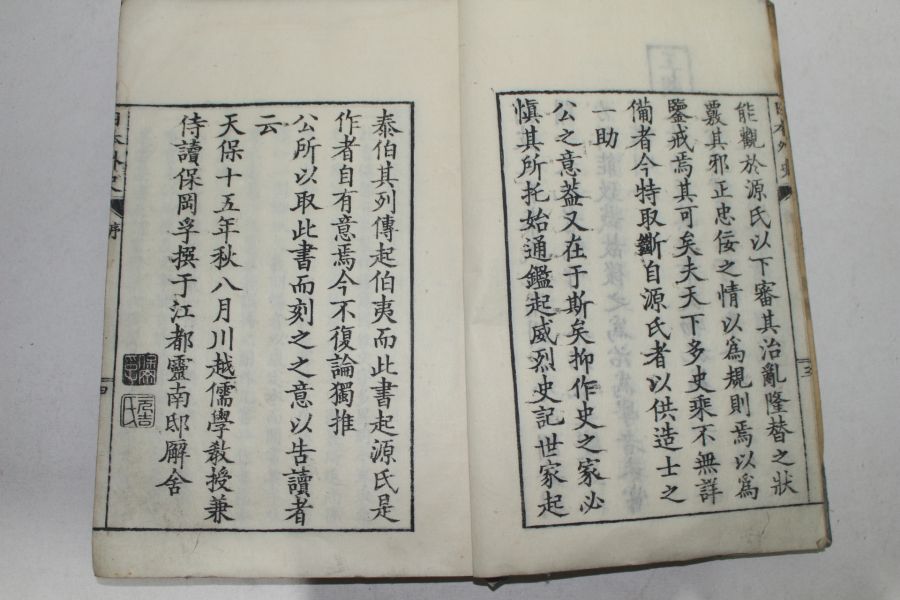 能觀於源氏以下審其治亂隆替之狀
覈其邪正忠佞之情以爲規則焉以爲
鑒戒焉其可矣夫天下多史乘不無詳
備者今特取斷自源氏者以供造士之
一助
公之意蓋又在于斯矣抑作史之家必
愼其所托始通鑑起威烈史記世家起
泰伯其列傳起伯夷而此書起源氏是
作者自有意焉今不復論獨推
公所以取此書而刻之之意以告讀者
云
天保十五年秋八月川越儒學教授兼
侍讀保岡孚撰于江都靈南邸廨舍
日本外史
序
四